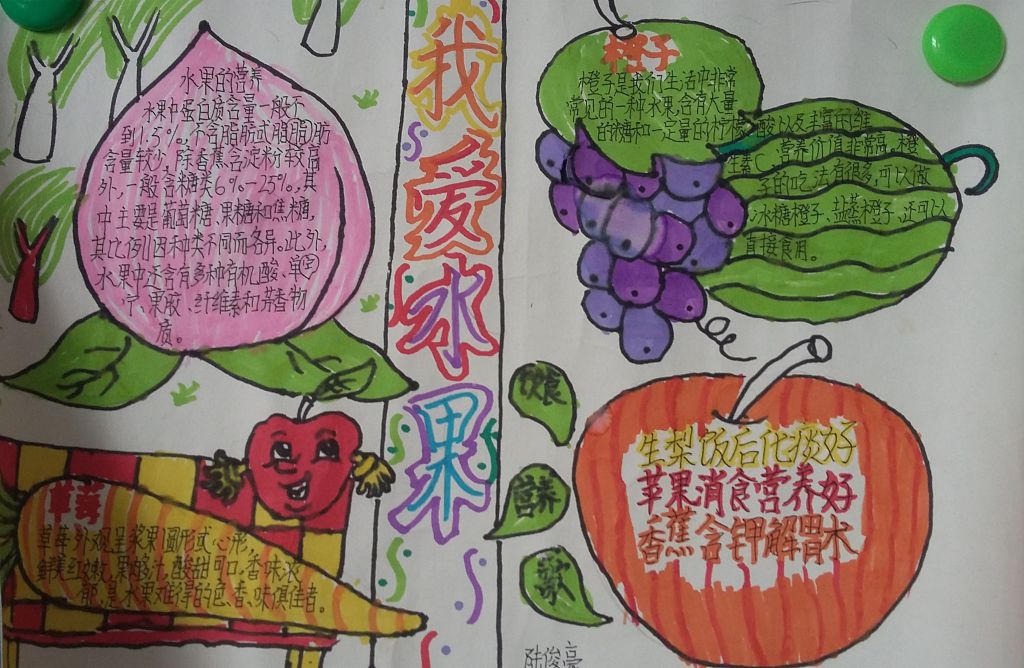 水果的营养
水果中蛋白质含量一般不
到1.5%,不含脂肪或脂肪
含量较少,除香蕉含淀粉较高
外,一般含糖类6%-25%。其
中主要是葡萄糖、果糖和焦糖,
其比例因种类不同而各异。此外,
水果中还含有多种有机酸、单
宁、果液、纤维素和芳香物
质。
草莓
草莓外观呈浆果圆形或心形,
鲜美红嫩,果肉多汁,酸甜可口,香味浓
郁,是水果难得的色、香、味俱佳者。
我爱水果
橙子
橙子是我们生活中非常
常见的一种水果,含有大量
的糖和一定量的柠檬酸以及丰富的维
生素C,营养价值非常高。橙
子的吃法有很多,可以做
冰糖橙子、盐蒸橙子,还可以
直接食用。
饮食
营养
生梨饭后化痰好
苹果消食营养好
香蕉含钾解胃水
陆俊亮